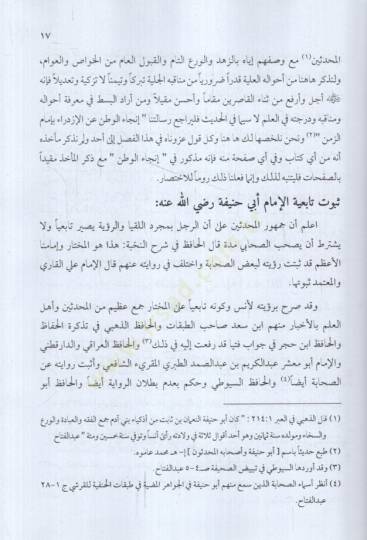 ١٧
المحدثين(١) مع وصفهم إياه بالزهد والورع التام والقبول العام من الخواص والعوام،
ولنذكر هاهنا من أحواله العلية قدراً ضرورياً من مناقبه الجلية تبركاً وتيمناً لا تزكية وتعديلاً فإنه
ﷺ أجل وأرفع من ثناء القاصرين مقاماً وأحسن مقيلاً ومن أراد البسط في معرفة أحواله
ومناقبه ودرجته في العلم لا سيما في الحديث فليراجع رسالتنا " إنجاء الوطن عن الإزدراء بإمام
الزمن "(٢) ونحن نلخصها لك ها هنا وكل قول عزوناه في هذا الفصل إلى أحد ولم نذكر مأخذه
أنه من أي كتاب وفي أي صفحة منه فإنه مذكور في " إنجاء الوطن " مع ذكر المأخذ مقيداً
بالصفحات فليتنبه لذلك وإنما فعلنا ذلك روماً للاختصار.
ثبوت تابعية الإمام أبي حنيفة رضي الله عنه:
اعلم أن جمهور المحدثين على أن الرجل بمجرد اللقيا والرؤية يصير تابعياً ولا
يشترط أن يصحب الصحابي مدة قال الحافظ في شرح النخبة: هذا هو المختار وإمامنا
الأعظم قد ثبتت رؤيته لبعض الصحابة واختلف في روايته عنهم قال الإمام علي القاري
والمعتمد ثبوتها.
وقد صرح برؤيته لأنس وكونه تابعياً على المختار جمع عظيم من المحدثين وأهل
العلم بالأخبار منهم ابن سعد صاحب الطبقات والحافظ الذهبي في تذكرة الحفاظ
والحافظ ابن حجر في جواب فتيا قد رفعت إليه في ذلك(٣) والحافظ العراقي والدارقطني
والإمام أبو معشر عبدالكريم بن عبدالصمد الطبري المقريء الشافعي وأثبت روايته عن
الصحابة أيضاً(٤) والحافظ السيوطي وحكم بعدم بطلان الرواية أيضاً والحافظ أبو
(١) قال الذهبي في العبر ١: ٢١٤: " كان أبو حنيفة النعمان بن ثابت من أذكياء بني آدم جمع الفقه والعبادة والورع
والسخاء ومولده سنة ثمانين وهو أحد أقوال ثلاثة في ولادته رأى أنساً وتوفي سنة خمسين ومئة " عبدالفتاح
(٢) طبع حديثاً باسم [أبو حنيفة وأصحابه المحدثون] إ-هـ محمد عاموه.
(٣) وقد أوردها السيوطي في تبييض الصحيفة صـ٤-٥ عبدالفتاح.
(٤) أنظر أسماء الصحابة الذين سمع منهم أبو حنيفة في الجواهر المضية في طبقات الحنفية للقرشي ج ١-٢٨
عبدالفتاح.